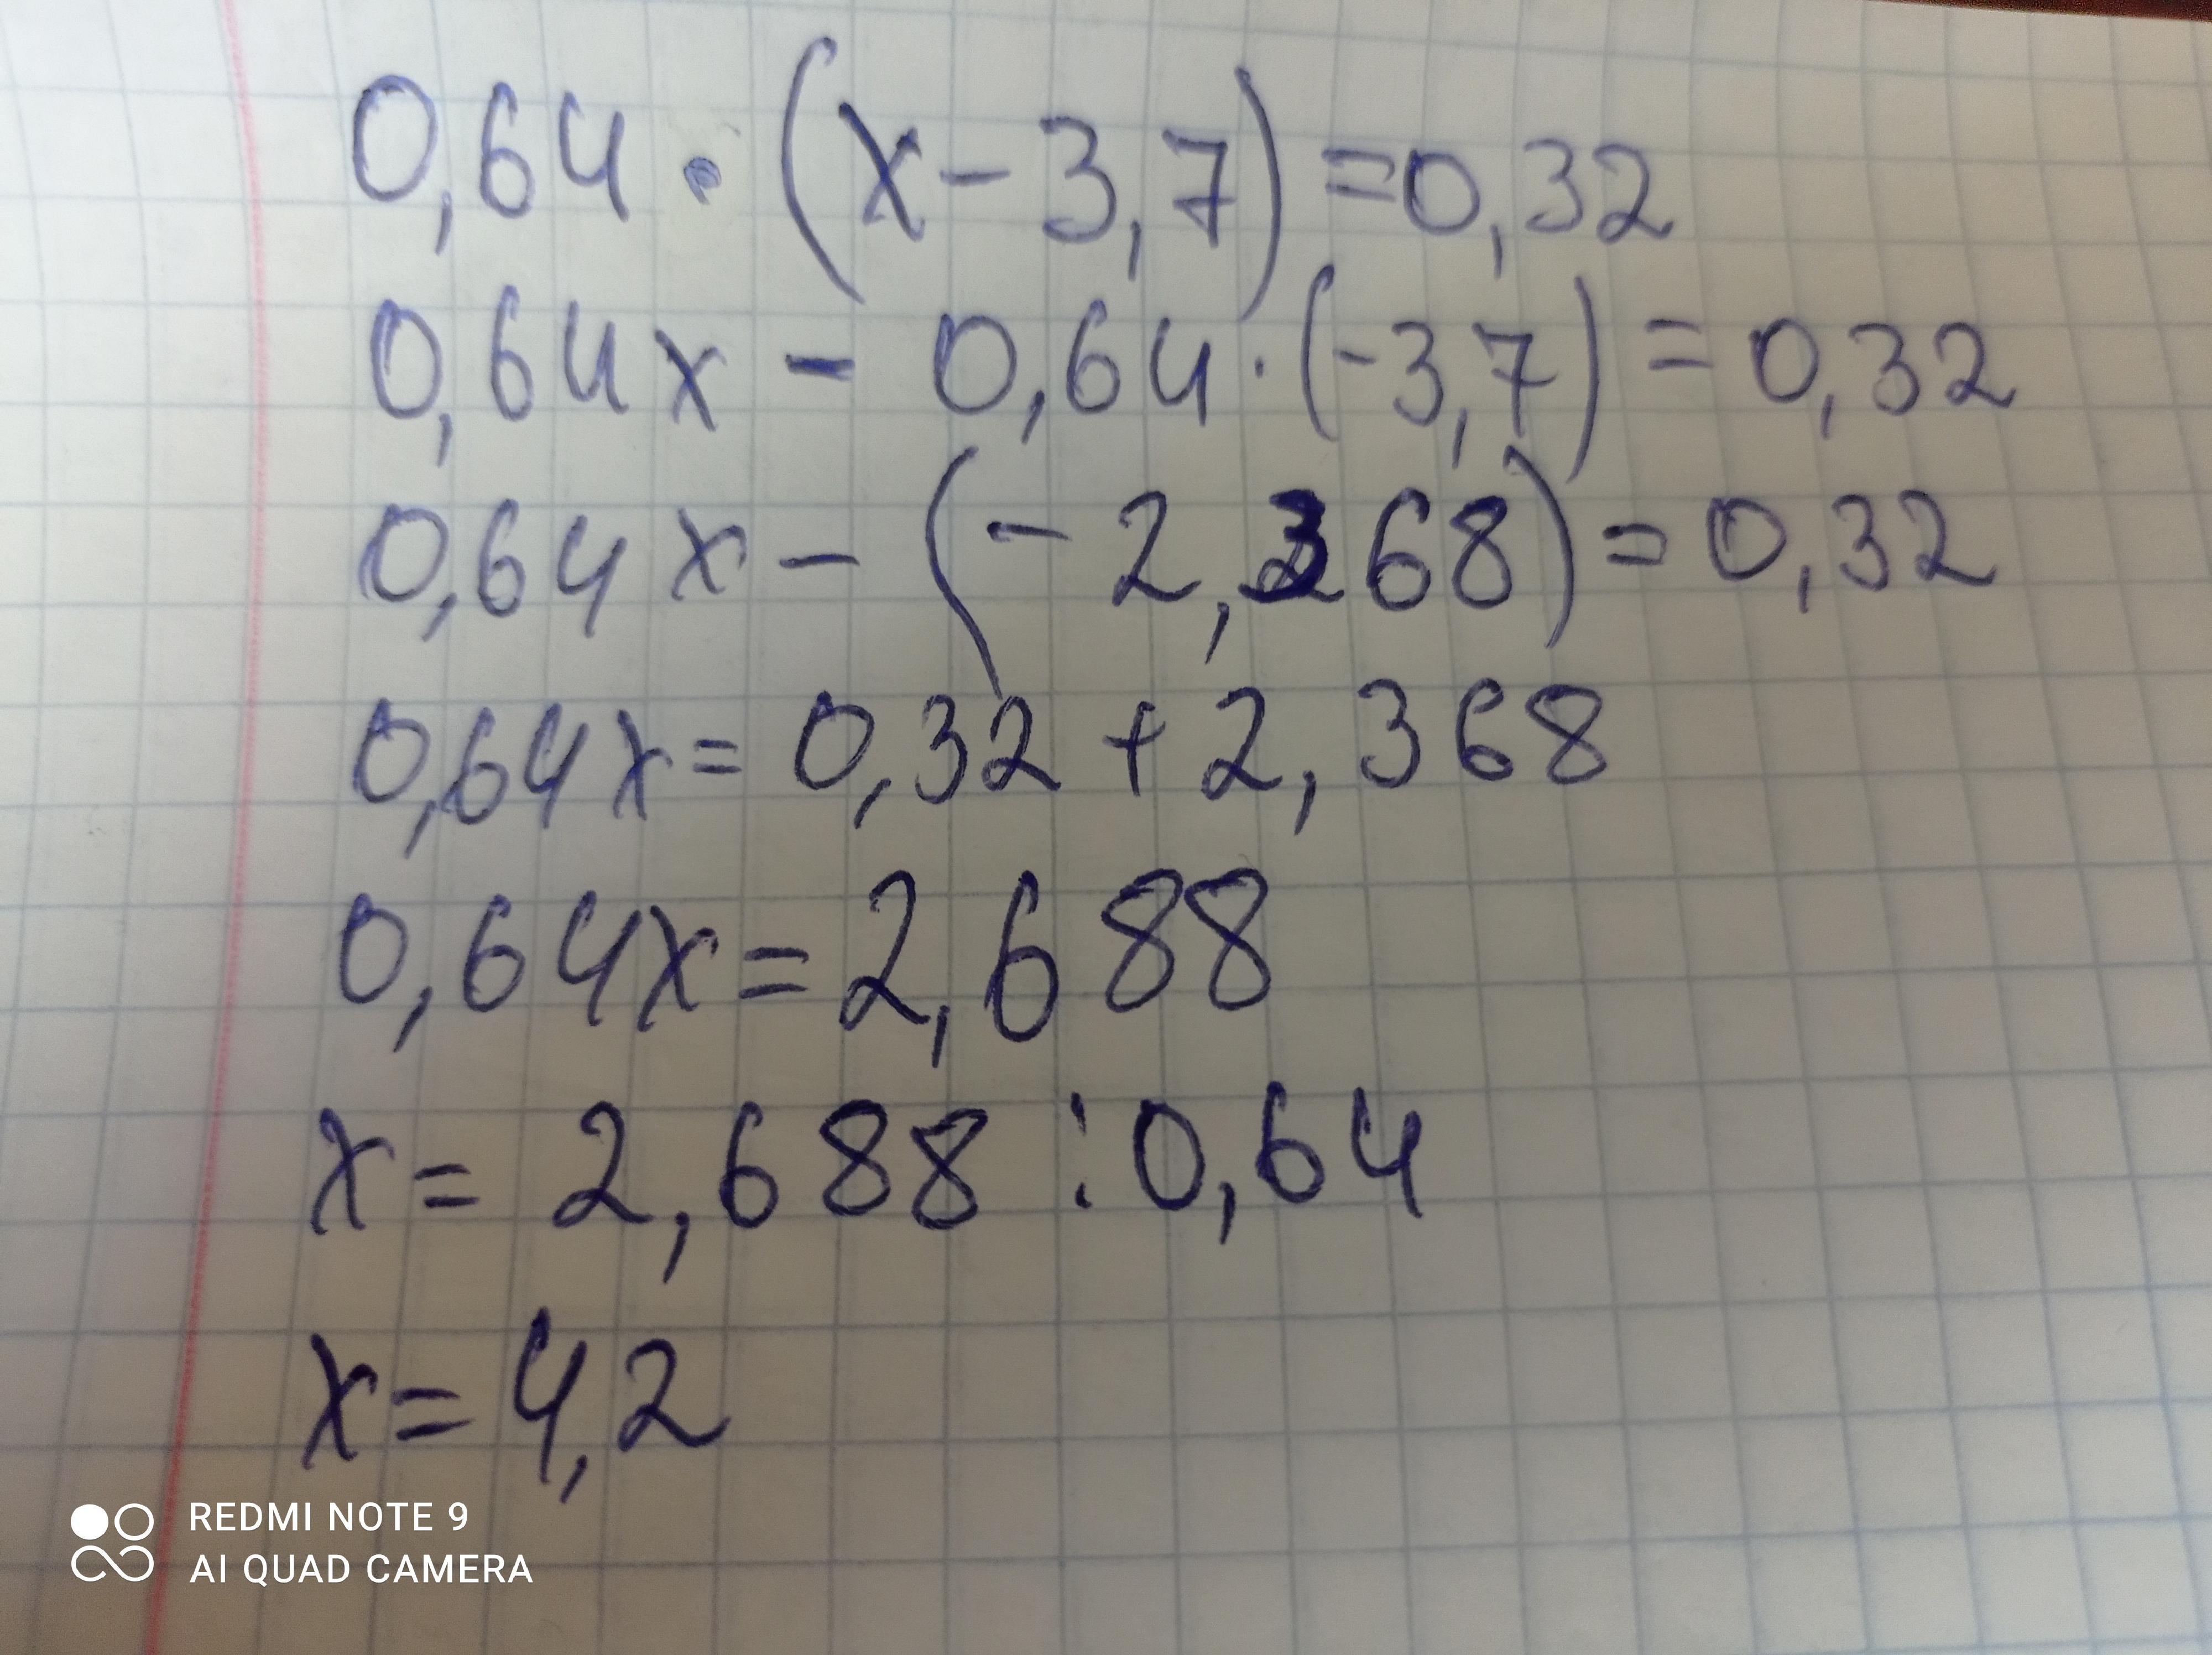 0,64 · (x - 3,7) = 0,32
0,64x - 0,64 · (-3,7) = 0,32
0,64x - (-2,368) = 0,32
0,64x = 0,32 + 2,368
0,64x = 2,688
x = 2,688 : 0,64
x = 4,2
REDMI NOTE 9
AI QUAD CAMERA